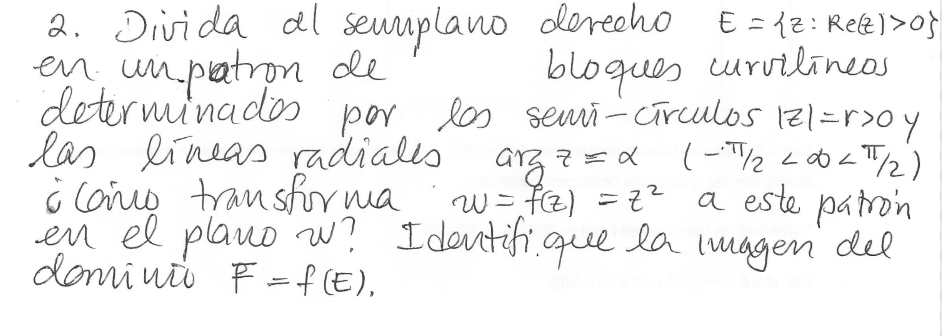 2. Divida al semiplano derecho E = {z: Re(z)>0}
en un patron de bloques curvilíneos
determinados por los semi-círculos |z|=r>0 y
las líneas radiales arg z = α (-π/2 < α < π/2)
¿Cómo transforma w = f(z) = z² a este patrón
en el plano w? Identifique la imagen del
dominio F = f(E).